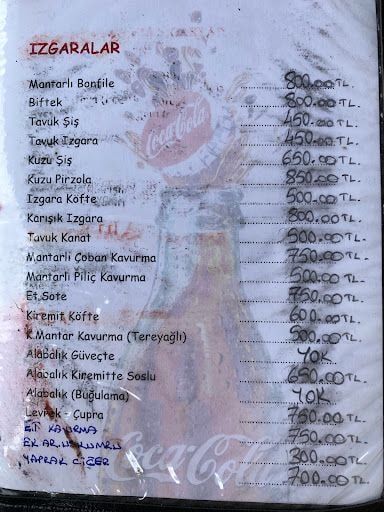 IZGARALAR
Mantarlı Bonfile 800.00 TL.
Biftek 800.00 TL.
Tavuk Şiş 450.00 TL.
Tavuk Izgara 450.00 TL.
Kuzu Şiş 650.00 TL.
Kuzu Pirzola 850.00 TL.
Izgara Köfte 500.00 TL.
Karışık Izgara 800.00 TL.
Tavuk Kanat 500.00 TL.
Mantarlı Çoban Kavurma 750.00 TL.
Mantarlı Piliç Kavurma 500.00 TL.
Et Sote 750.00 TL.
Kiremit Köfte 600.00 TL.
K.Mantar Kavurma (Tereyağlı) 500.00 TL.
Alabalık Güveçte YOK
Alabalık Kiremitte Soslu 650.00 TL.
Alabalık (Buğulama) YOK
Levrek - Çupra 750.00 TL.
ET KAVURMA 750.00 TL.
EK 300.00 TL.
YAPRAK CİĞER 700.00 TL.
Coca-Cola
Coca-Cola